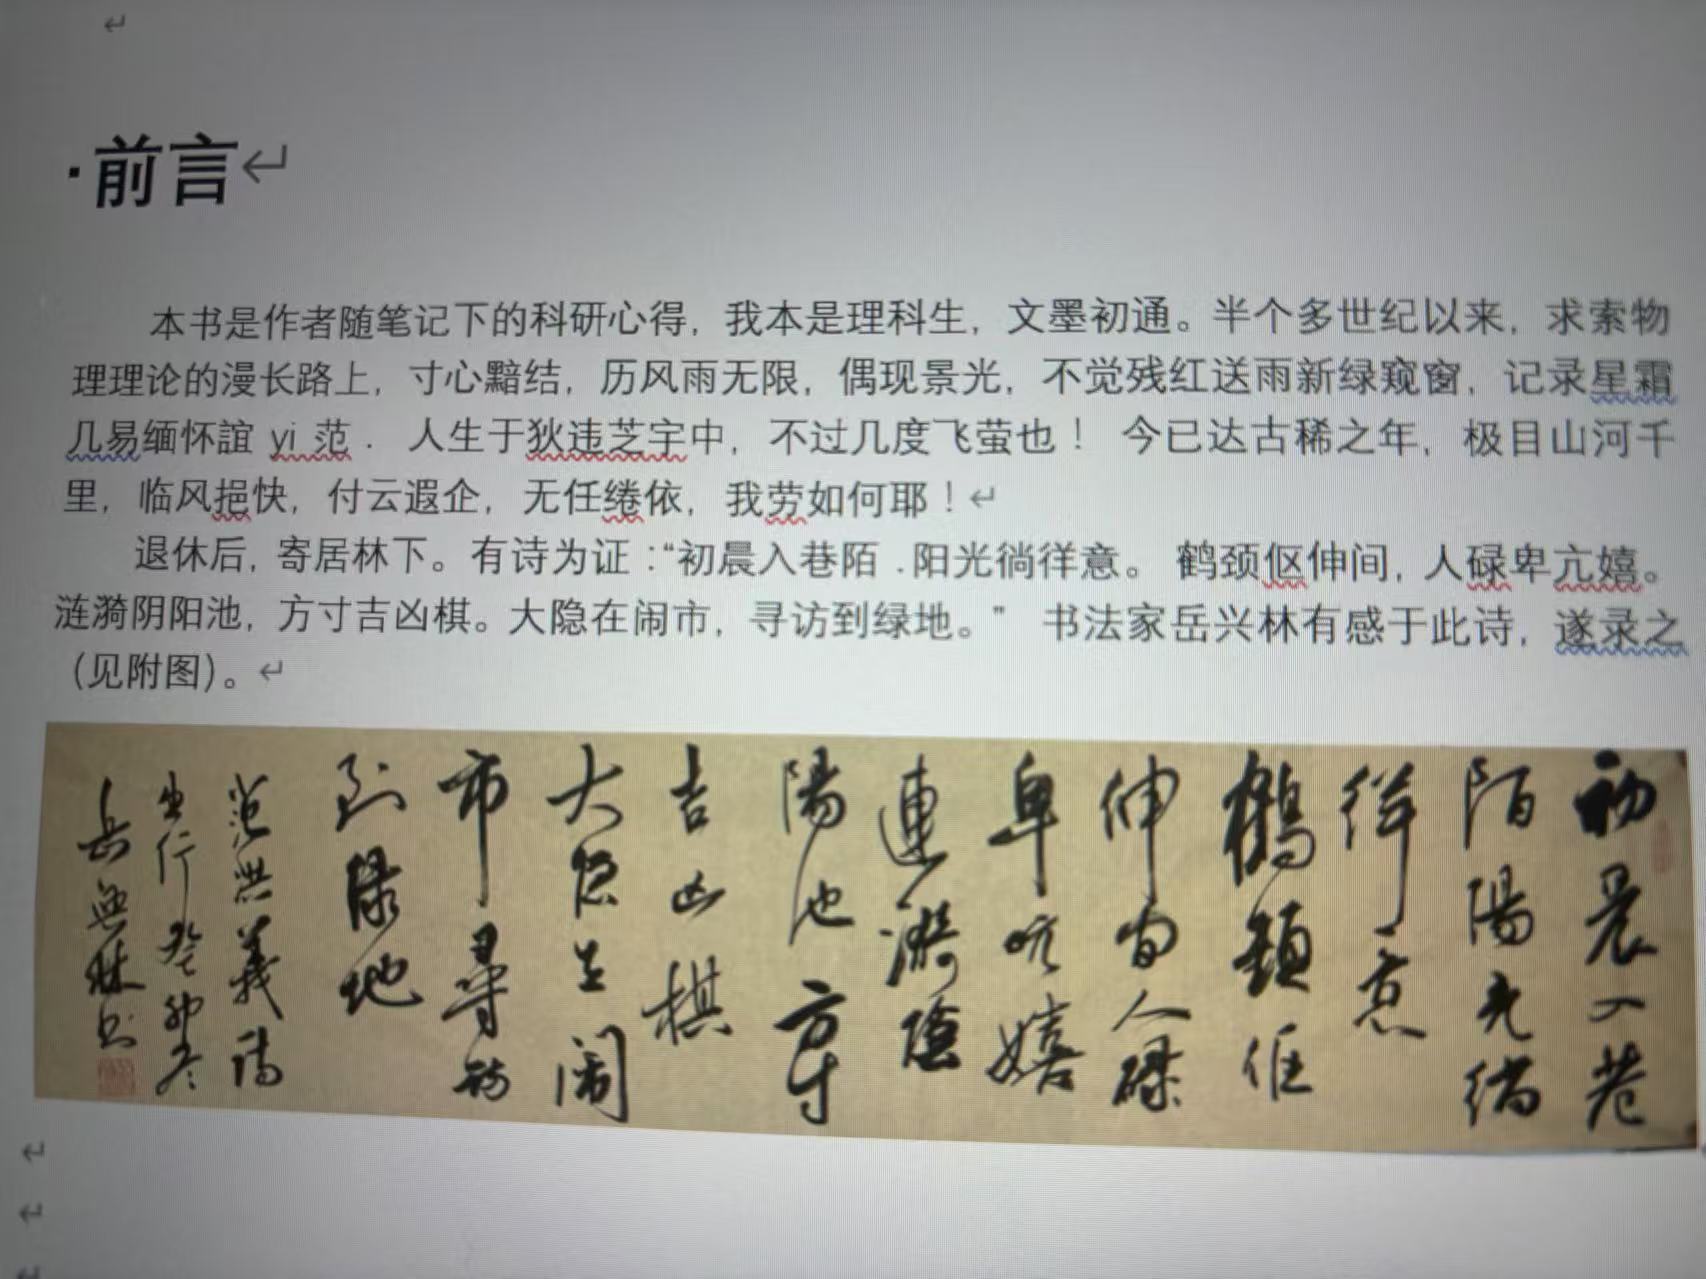 ·前言
本书是作者随笔记下的科研心得，我本是理科生，文墨初通。半个多世纪以来，求索物
理理论的漫长路上，寸心黯结，历风雨无限，偶现景光，不觉残红送雨新绿窥窗，记录星霜
几易缅怀誼 yi 范． 人生于狄违芝宇中，不过几度飞萤也！ 今已达古稀之年，极目山河千
里，临风挹快，付云遐企，无任绻依，我劳如何耶！
退休后，寄居林下。有诗为证：“初晨入巷陌 .阳光徜徉意。 鹤颈伛伸间，人碌卑亢嬉。
涟漪阴阳池，方寸吉凶棋。大隐在闹市，寻访到绿地。” 书法家岳兴林有感于此诗，遂录之
（见附图）。
初晨入巷
陌陽光徜
徉意
鹤頸伛
伸间人碌
卑亢嬉
漣漪陰
陽池方寸
吉凶棋
大隐在闹
市尋訪
到绿地
范洪義诗
癸卯冬
岳兴林书